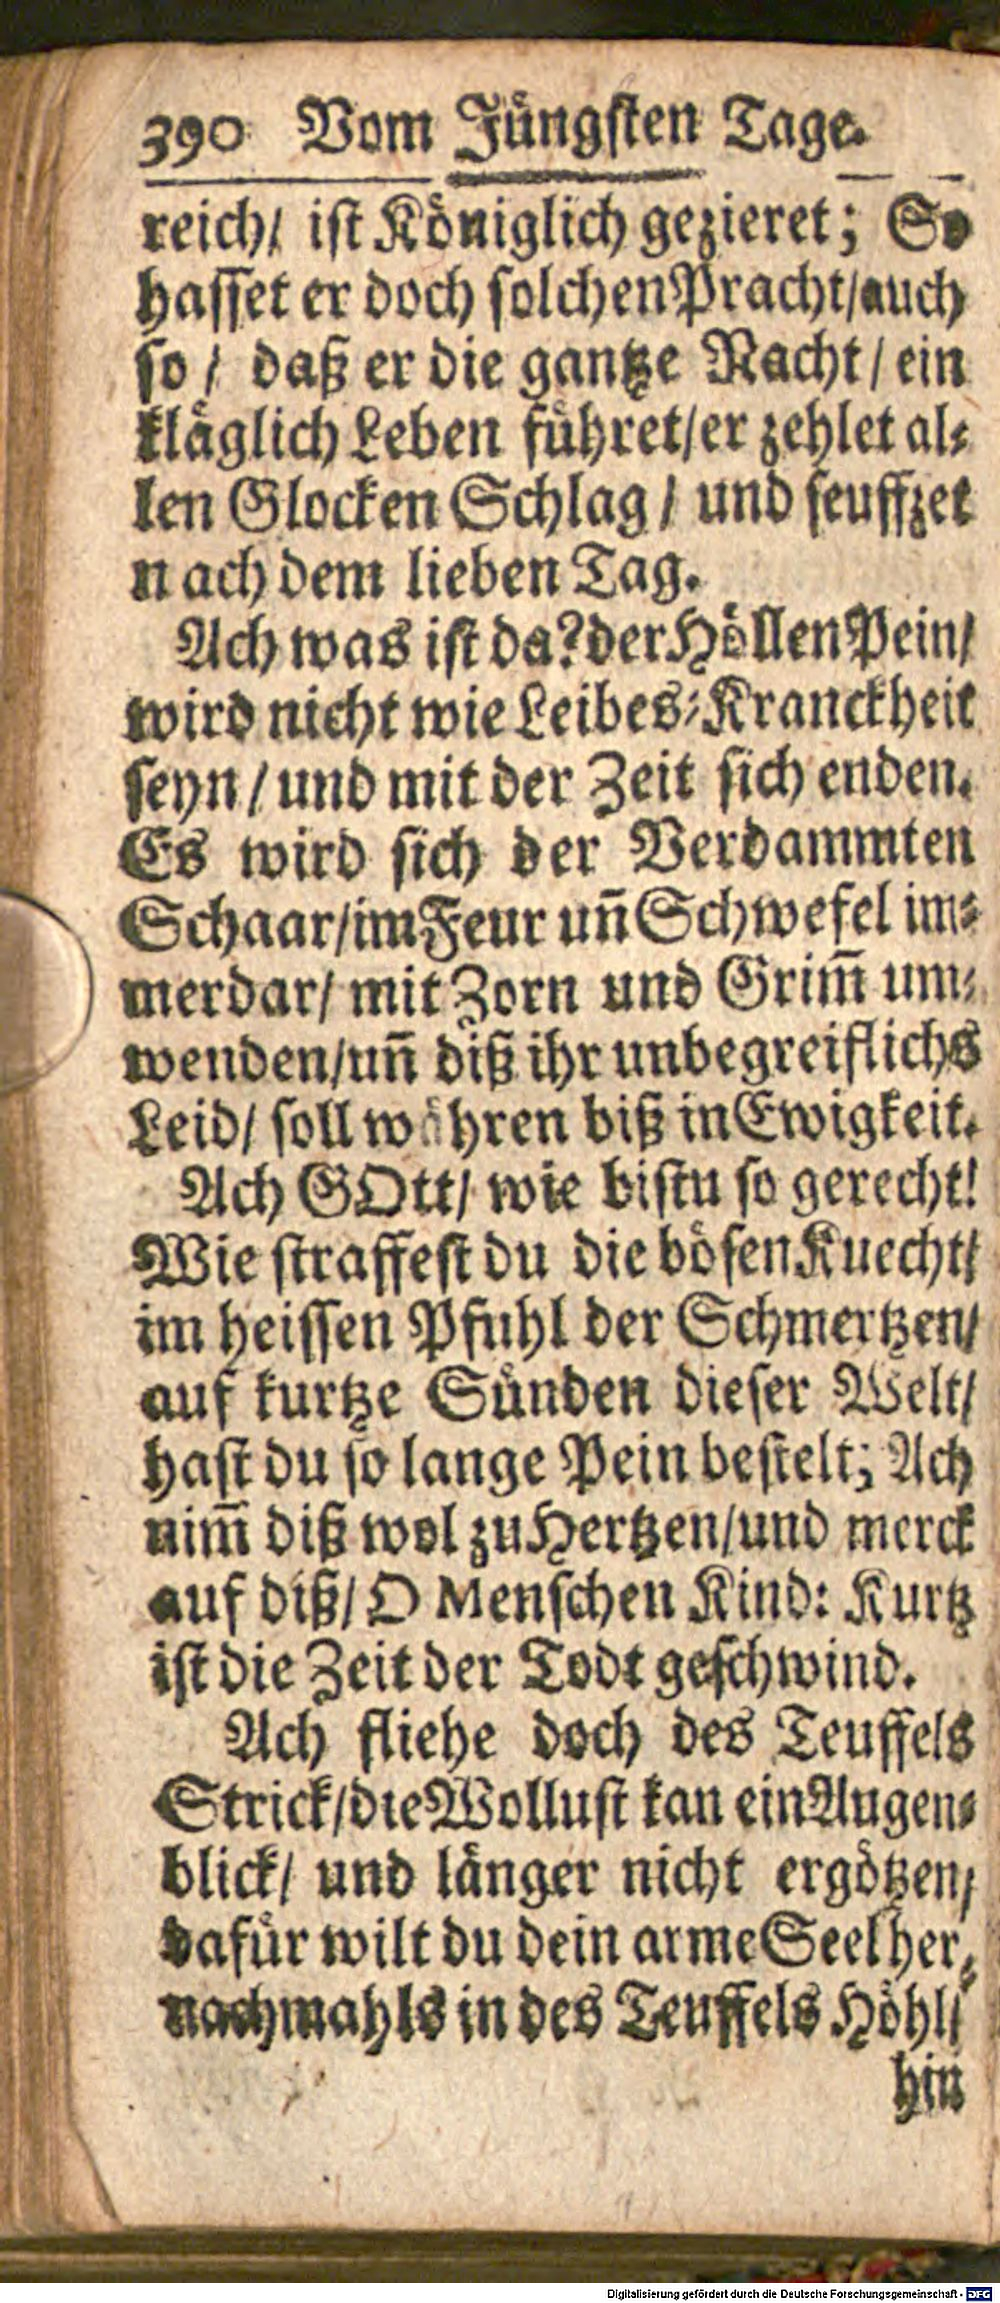 390 Vom Jüngsten Tage.
reich/ ist Königlich gezieret; So
hasset er doch solchen Pracht/auch
so / daß er die gantze Nacht / ein
kläglich Leben führet/er zehlet al-
len Glocken Schlag / und seuffzet
n ach dem lieben Tag.
Ach was ist da? der Höllen Pein/
wird nicht wie Leibes-Kranckheit
seyn / und mit der Zeit sich enden.
Es wird sich der Verdammten
Schaar/im Feur uñ Schwefel im-
merdar/ mit Zorn und Grim̃ um-
wenden/uñ diß ihr unbegreiflichs
Leid/ soll währen biß in Ewigkeit.
Ach GOtt/ wie bistu so gerecht!
Wie straffest du die bösen Kuecht/
im heissen Pfuhl der Schmertzen/
auf kurtze Sünden dieser Welt/
hast du so lange Pein bestelt; Ach
nim̃ diß wol zu Hertzen/und merck
auf diß/ O Menschen Kind: Kurtz
ist die Zeit der Todt geschwind.
Ach fliehe doch des Teuffels
Strick/die Wollust kan ein Augen-
blick/ und länger nicht ergötzen/
dafür wilt du dein arme Seel her-
nachmahls in des Teuffels Höhl/
hin
Digitalisierung gefördert durch die Deutsche Forschungsgemeinschaft - DFG